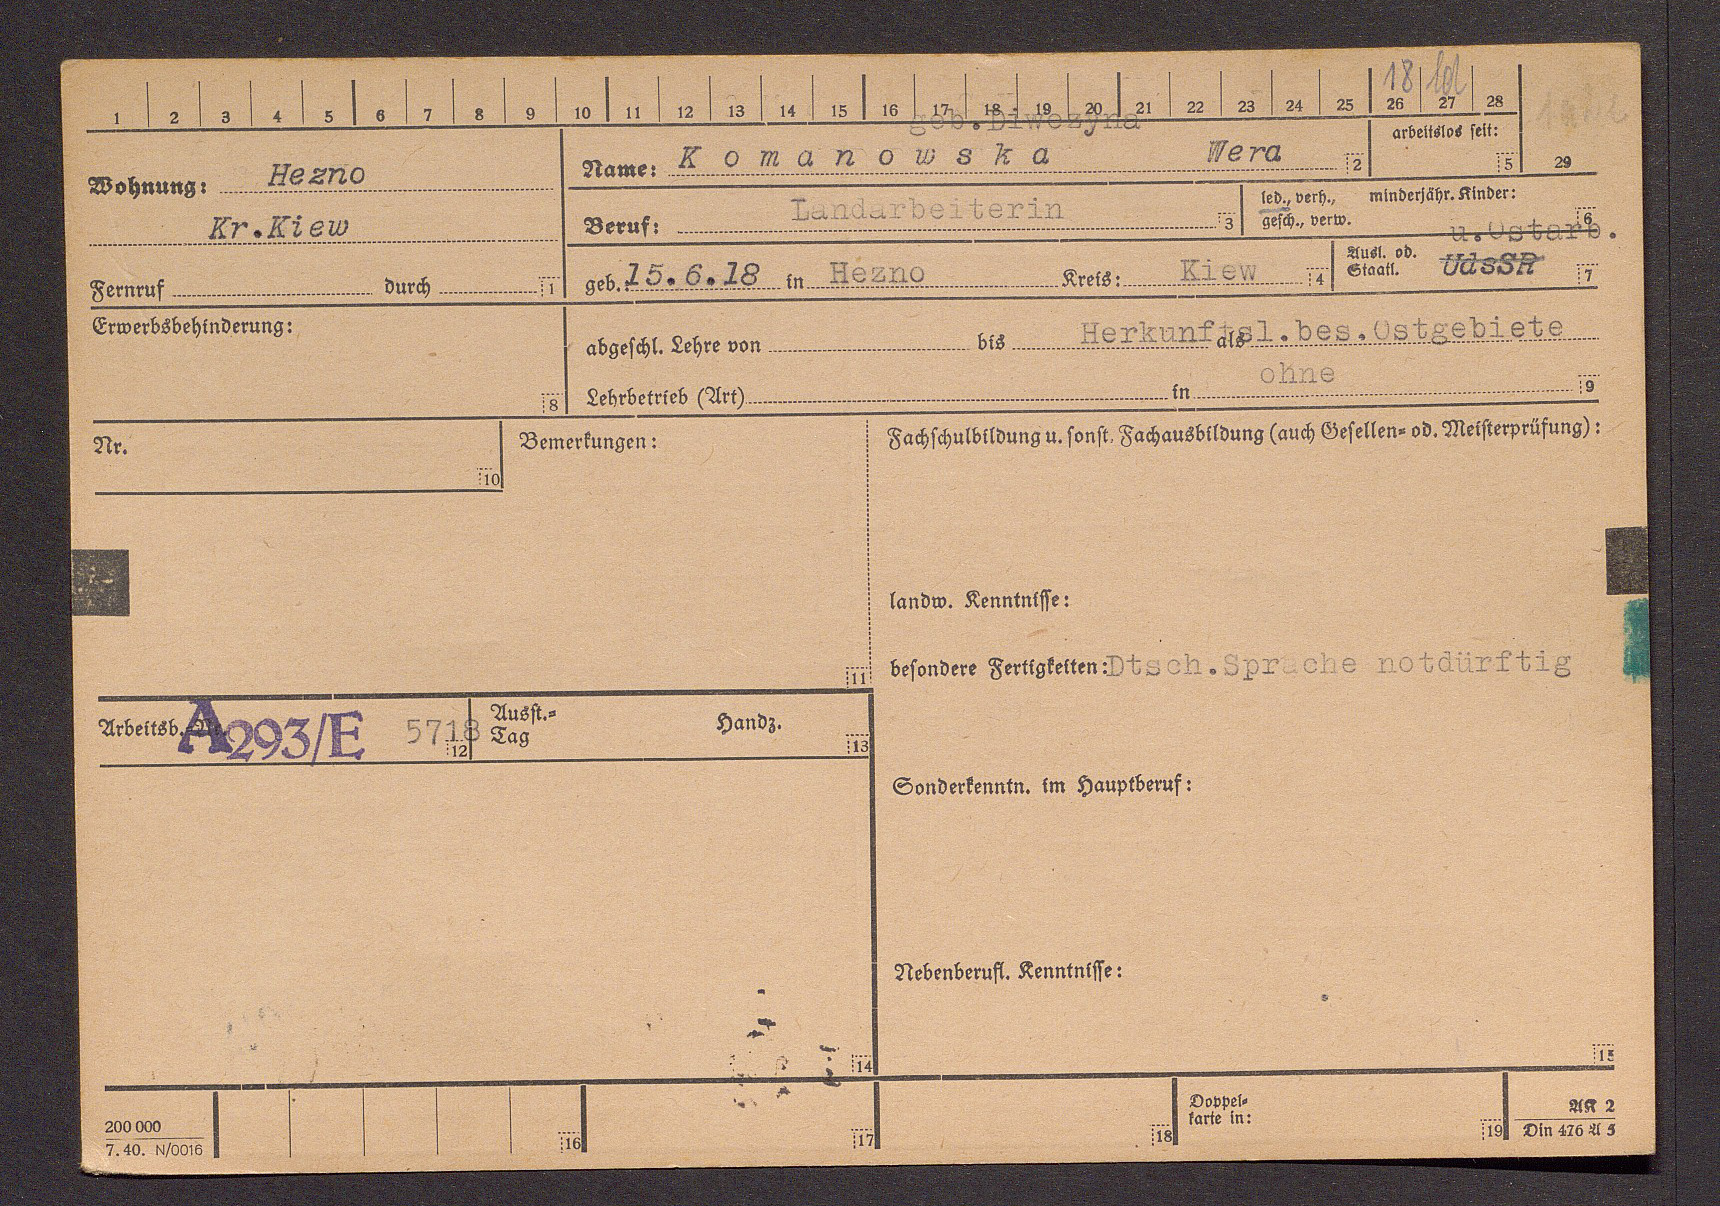 18 ld
1 2 3 4 5 6 7 8 9 10 11 12 13 14 15 16 17 18 19 20 21 22 23 24 25 26 27 28
geb.Diwezyna
arbeitslos seit:
Wohnung: Hezno
Name: Komanowska Wera 2
5 29
Kr.Kiew
Beruf: Landarbeiterin 3
led., verh., gesch., verw.
minderjähr. Kinder: 6
u.Ostarb.
Fernruf durch 1
geb.: 15.6.18 in Hezno Kreis: Kiew 4
Ausl. od. Staatl. UdsSR 7
Erwerbsbehinderung:
8
abgeschl. Lehre von bis als
Herkunftsl.bes.Ostgebiete
ohne
Lehrbetrieb (Art) in 9
Nr.
10
Bemerkungen:
11
Fachschulbildung u. sonst. Fachausbildung (auch Gesellen= od. Meisterprüfung):
landw. Kenntnisse:
besondere Fertigkeiten: Dtsch.Sprache notdürftig
Arbeitsb.-Nr. A293/E 5718 12
Ausst.=
Tag
Handz.
13
Sonderkenntn. im Hauptberuf:
Nebenberufl. Kenntnisse:
14
15
200 000
7. 40. N/0016
16
17
18
Doppel=
karte in:
19
AK 2
Din 476 A 5